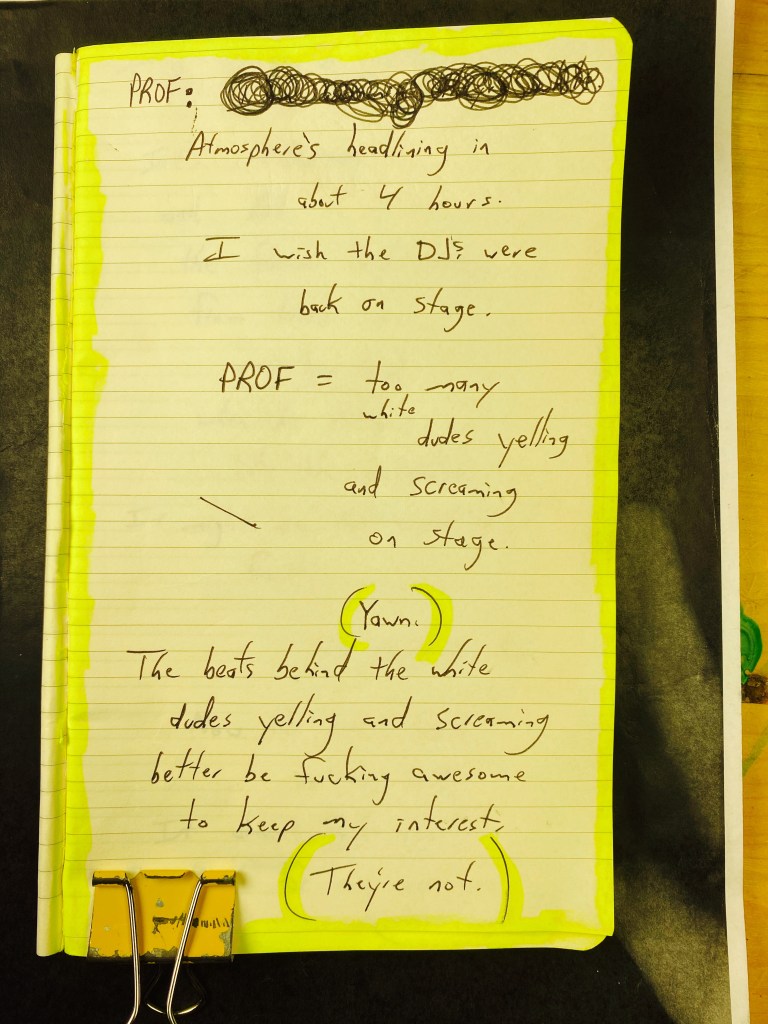 PROF:
Atmosphere's headlining in
about 4 hours.
I wish the DJ's were
back on stage.
PROF = too many
white
dudes yelling
and screaming
on stage.
(Yawn.)
The beats behind the white
dudes yelling and screaming
better be fucking awesome
to keep my interest.
(They're not.)